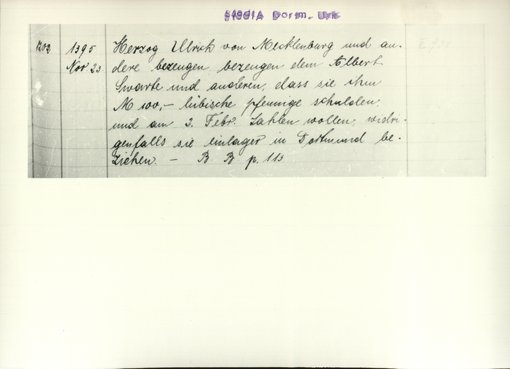 StadtA Dortm. Urk
1202 1395 Herzog Ulrich von Mecklenburg und an-
Nov 23 dere bezeugen bezeugen dem Albert
Swarte und anderen, dass sie ihm
M 100,- lübische pfennige schulden
und am 2. Febr. Zahlen wollen, widri-
genfalls sie einlager in Dortmund be-
ziehen. - B B p. 113